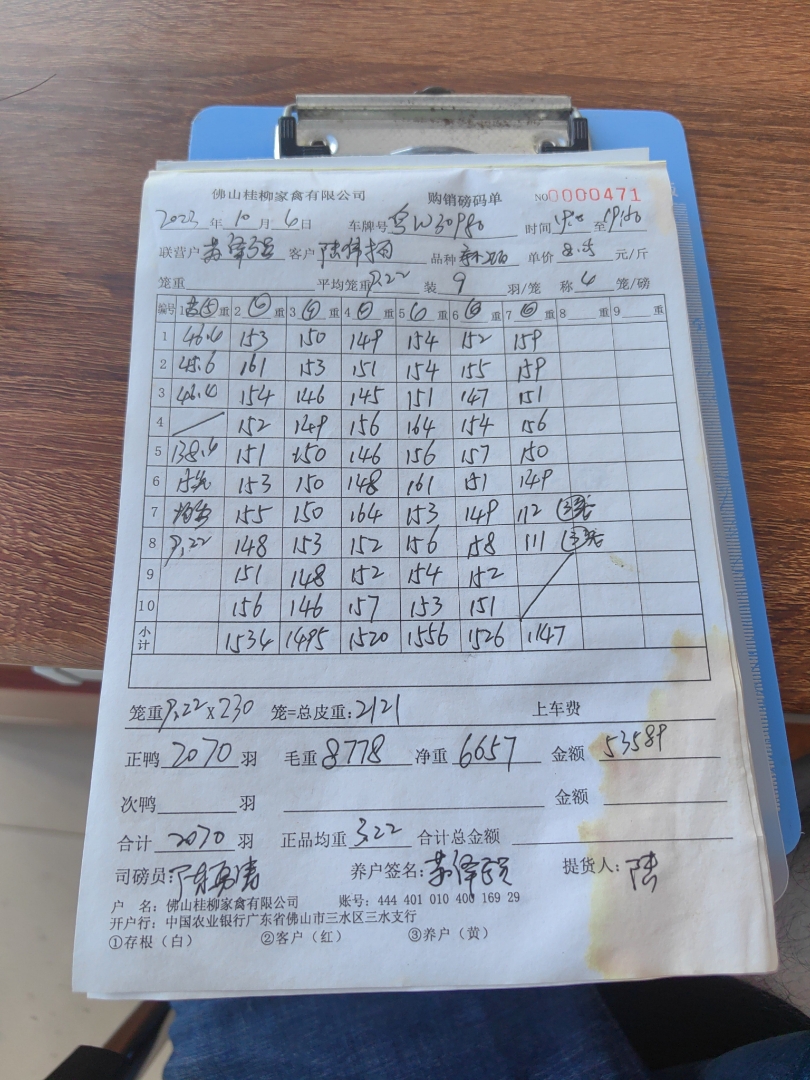 佛山桂柳家禽有限公司 购销磅码单 NO0000471
2023年10月6日 车牌号 粤W30980 时间 至
联营户 客户 陆 品种 单价 元/斤
笼重 平均笼重 9.22 装 9 羽/笼 称 4 笼/磅
编号 1 重 2 重 3 重 4 重 5 6 重 7 重 8 重 9 重
1 46.6 153 150 149 154 152 159
2 45.6 161 153 151 154 155 159
3 46.4 154 146 145 151 147 151
4 152 149 156 164 154 156
5 138.6 151 150 146 156 157 150
6 153 150 148 161 151 149
7 155 150 164 153 149 112
8 9.22 148 153 152 156 158 111
9 151 148 152 154 152
10 156 146 157 153 151
小计 1534 1495 1520 1556 1526 1147
笼重 9.22×230 笼=总皮重:2121 上车费
正鸭 2070 羽 毛重 8778 净重 6657 金额 53589
次鸭 羽 金额
合计 2070 羽 正品均重 3.22 合计总金额
司磅员: 养户签名: 提货人: 陆
户 名: 佛山桂柳家禽有限公司 账号: 444 401 010 400 169 29
开户行: 中国农业银行广东省佛山市三水区三水支行
①存根(白) ②客户(红) ③养户(黄)